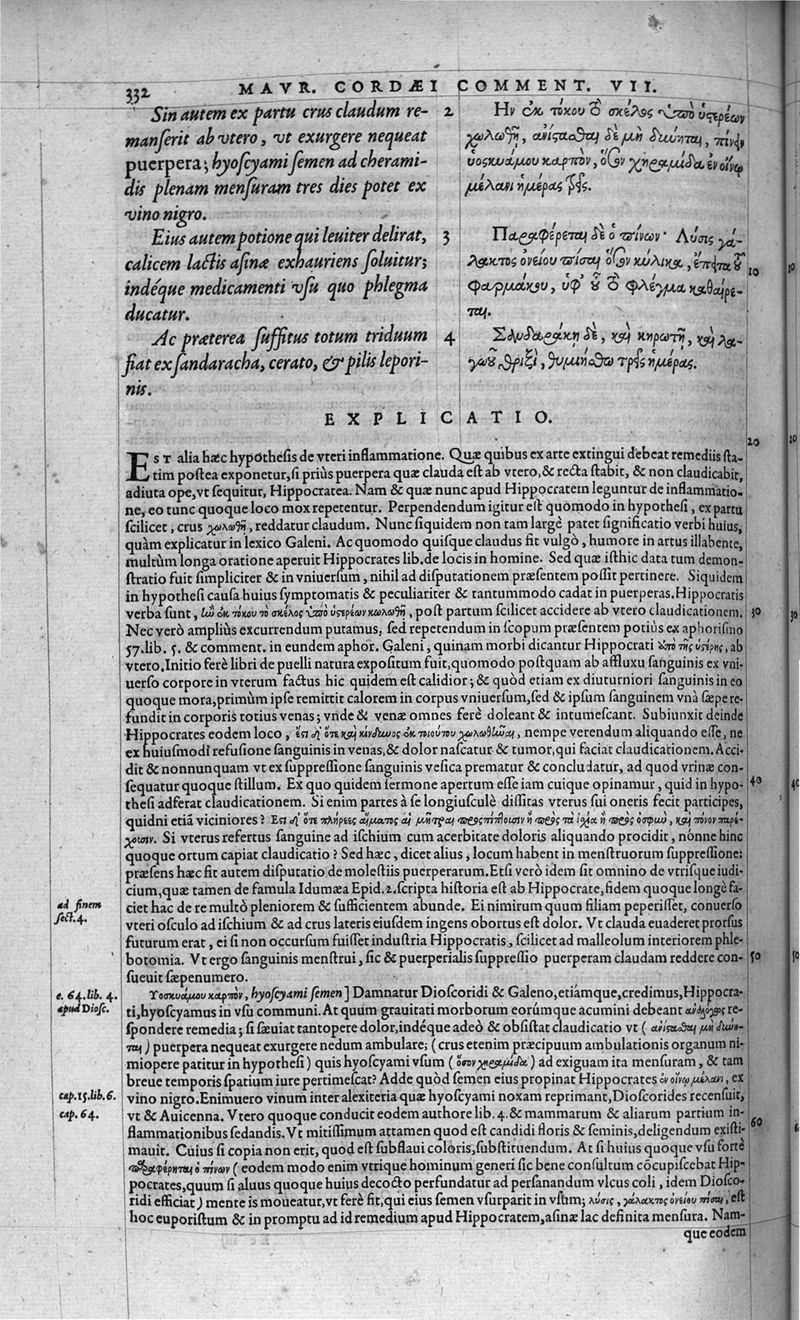 332
MAVR. CORDÆI COMMENT. VII.
Sin autem ex partu crus claudum re-
manſerit ab vtero, vt exurgere nequeat
puerpera; hyoſcyami ſemen ad cherami-
dis plenam menſuram tres dies potet ex
vino nigro.
Eius autem potione qui leuiter delirat,
calicem lactis aſinæ exhauriens ſoluitur;
indéque medicamenti vſu quo phlegma
ducatur.
Ac præterea ſuffitus totum triduum
fiat ex ſandaracha, cerato, & pilis lepori-
nis.
2 Ην ἐκ τόκου τὸ σκέλος ὑπὸ ὑστερέων
χωλωθῇ, ἀνίστασθαι δὲ μὴ δύνηται, πίνειν
ὑοσκυάμου καρπὸν, ὅσον χηραμίδα ἐν οἴνῳ
μέλανι ἡμέρας τρεῖς.
3 Παραφέρεται δὲ ὁ πίνων· Λύσις γά-
λακτος ὀνείου πῖσαι ὅσον κύλικα, ἔπειτα τοῦ 10
φαρμάκου, ὑφ' οὗ τὸ φλέγμα καθαίρε-
ται.
4 Σανδαράκη δὲ, καὶ κηρωτῇ, καὶ λα-
γωοῦ θριξὶ, θυμιήσθω τρεῖς ἡμέρας.
EXPLICATIO.
20
EST alia hæc hypotheſis de vteri inflammatione. Quæ quibus ex arte extingui debeat remediis ſta-
tim poſtea exponetur, ſi priùs puerpera quæ clauda eſt ab vtero, & recta ſtabit, & non claudicabit,
adiuta ope, vt ſequitur, Hippocratea. Nam & quæ nunc apud Hippocratem leguntur de inflammatio-
ne, eo tunc quoque loco mox repetentur. Perpendendum igitur eſt quomodo in hypotheſi, ex partu
ſcilicet, crus χωλωθῇ, reddatur claudum. Nunc ſiquidem non tam largè patet ſignificatio verbi huius,
quàm explicatur in lexico Galeni. Ac quomodo quiſque claudus fit vulgò, humore in artus illabente,
multùm longa oratione aperuit Hippocrates lib. de locis in homine. Sed quæ iſthic data tum demon-
ſtratio fuit ſimpliciter & in vniuerſum, nihil ad diſputationem præſentem poſſit pertinere. Siquidem
in hypotheſi cauſa huius ſymptomatis & peculiariter & tantummodo cadat in puerperas. Hippocratis
verba ſunt, ἢν ἐκ τόκου τὸ σκέλος ὑπὸ ὑστερέων χωλωθῇ, poſt partum ſcilicet accidere ab vtero claudicationem. 30
Nec verò ampliùs excurrendum putamus, ſed repetendum in ſcopum præſentem potiùs ex aphoriſmo
57. lib. 5. & comment. in eundem aphor. Galeni, quinam morbi dicantur Hippocrati ἀπὸ τῆς ὑστέρης, ab
vtero. Initio ferè libri de puelli natura expoſitum fuit, quomodo poſtquam ab affluxu ſanguinis ex vni-
uerſo corpore in vterum factus hic quidem eſt calidior; & quòd etiam ex diuturniori ſanguinis in eo
quoque mora, primùm ipſe remittit calorem in corpus vniuerſum, ſed & ipſum ſanguinem vnà ſæpe re-
fundit in corporis totius venas; vnde & venæ omnes ferè doleant & intumeſcant. Subiunxit deinde
Hippocrates eodem loco, ἔστι δ' ὅτε καὶ κίνδυνος ἐκ τοιούτου χωλωθῆναι, nempe verendum aliquando eſſe, ne
ex huiuſmodi refuſione ſanguinis in venas, & dolor naſcatur & tumor, qui faciat claudicationem. Acci-
dit & nonnunquam vt ex ſuppreſſione ſanguinis veſica prematur & concludatur, ad quod vrinæ con-
ſequatur quoque ſtillum. Ex quo quidem ſermone apertum eſſe iam cuique opinamur, quid in hypo- 40
theſi adferat claudicationem. Si enim partes à ſe longiuſculè diſſitas vterus ſui oneris fecit participes,
quidni etiã viciniores? Ἔστι δ' ὅτε πλήρεες αἵματος αἱ μῆτραι προσπίπτουσιν ἢ πρὸς τὰ ἰσχία ἢ πρὸς ὀσφὺν, καὶ πόνον παρέ-
χουσιν. Si vterus refertus ſanguine ad iſchium cum acerbitate doloris aliquando procidit, nónne hinc
quoque ortum capiat claudicatio? Sed hæc, dicet alius, locum habent in menſtruorum ſuppreſſione:
præſens hæc fit autem diſputatio de moleſtiis puerperarum. Etſi verò idem ſit omnino de vtriſque iudi-
cium, quæ tamen de famula Idumæa Epid. 2. ſcripta hiſtoria eſt ab Hippocrate, fidem quoque longè fa-
ad finem ſect. 4.
ciet hac de re multò pleniorem & ſufficientem abunde. Ei nimirum quum filiam peperiſſet, conuerſo
vteri oſculo ad iſchium & ad crus lateris eiuſdem ingens obortus eſt dolor. Vt clauda euaderet prorſus
futurum erat, ei ſi non occurſum fuiſſet induſtria Hippocratis, ſcilicet ad malleolum interiorem phle-
botomia. Vt ergo ſanguinis menſtrui, ſic & puerperialis ſuppreſſio puerperam claudam reddere con- 50
ſueuit ſæpenumero.
e. 64. lib. 4. apud Dioſc.
Ὑοσκυάμου καρπὸν, hyoſcyami ſemen] Damnatur Dioſcoridi & Galeno, etiámque, credimus, Hippocra-
ti, hyoſcyamus in vſu communi. At quum grauitati morborum eorúmque acumini debeant ἀναλόγως re-
ſpondere remedia; ſi ſæuiat tantopere dolor, indéque adeò & obſiſtat claudicatio vt (ἀνίστασθαι μὴ δύνη-
ται) puerpera nequeat exurgere nedum ambulare; (crus etenim præcipuum ambulationis organum ni-
miopere patitur in hypotheſi) quis hyoſcyami vſum (ὅσον χηραμίδα) ad exiguam ita menſuram, & tam
breue temporis ſpatium iure pertimeſcat? Adde quòd ſemen eius propinat Hippocrates ἐν οἴνῳ μέλανι, ex
cap. 15. lib. 6.
vino nigro. Enimuero vinum inter alexiteria quæ hyoſcyami noxam reprimant, Dioſcorides recenſuit,
cap. 64.
vt & Auicenna. Vtero quoque conducit eodem authore lib. 4. & mammarum & aliarum partium in-
flammationibus ſedandis. Vt mitiſſimum attamen quod eſt candidi floris & ſeminis, deligendum exiſti- 60
mauit. Cuius ſi copia non erit, quod eſt ſubflaui coloris, ſubſtituendum. At ſi huius quoque vſu fortè
παραφέρηται ὁ πίνων (eodem modo enim vtrique hominum generi ſic bene conſultum cõcupiſcebat Hip-
pocrates, quum ſi aluus quoque huius decocto perfundatur ad perſanandum vlcus coli, idem Dioſco-
ridi efficiat) mente is moueatur, vt ferè fit, qui eius ſemen vſurparit in vſum; λύσις, γάλακτος ὀνείου πῖσαι, eſt
hoc euporiſtum & in promptu ad id remedium apud Hippocratem, aſinæ lac definita menſura. Nam-
que eodem